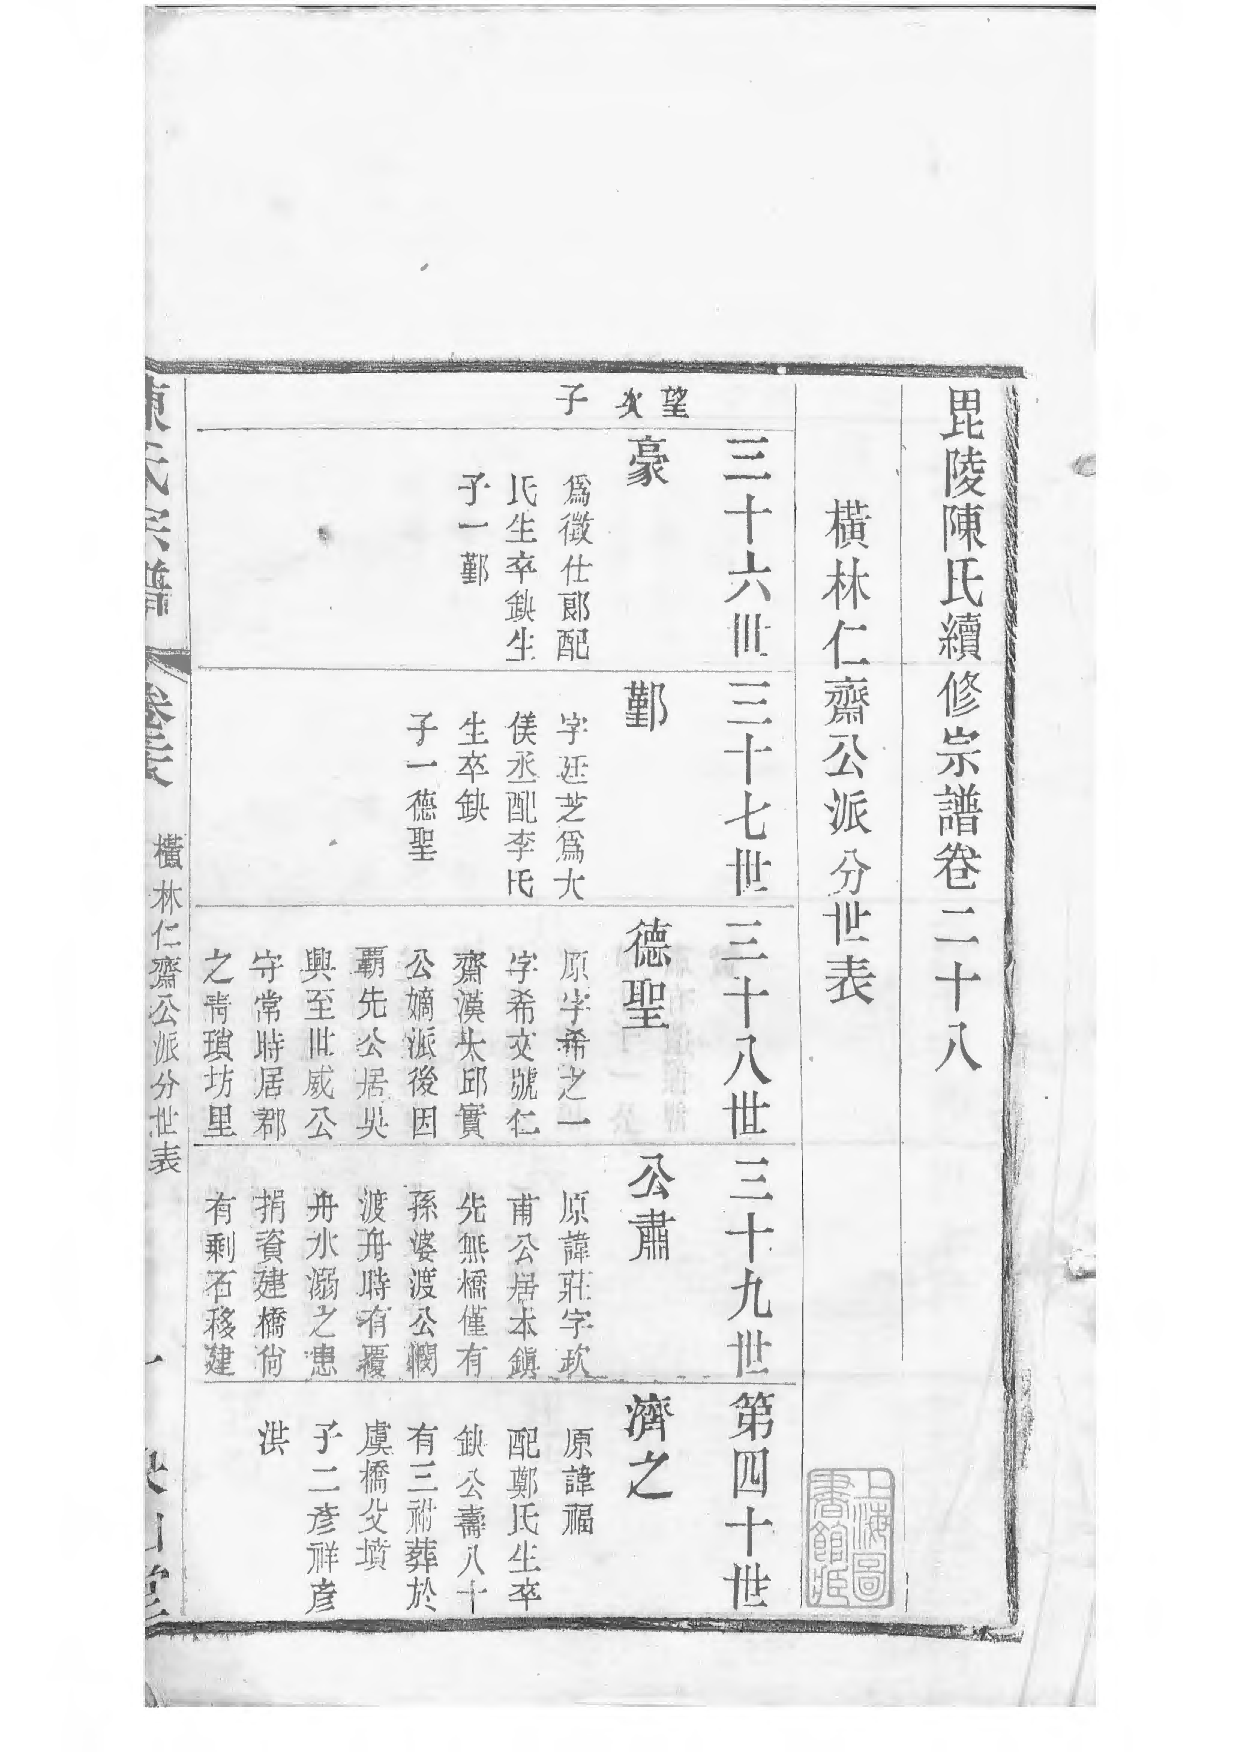 毘陵陳氏續修宗譜卷二十八
橫林仁齋公派分世表
望次子
三十六世
豪
爲徵仕郎配
氏生卒缺生
子一鄞
三十七世
鄞
字廷芝爲大
使丞配李氏
生卒缺
子一德聖
三十八世
德聖
原字希之一
字希文號仁
齋漢太邱實
公嫡派後因
霸先公居吳
興至世威公
守常時居郡
之靑瑣坊里
三十九世
公肅
原諱莊字政
甫公居本鎭
先無橋僅有
孫婆渡公憫
渡舟時有覆
舟水溺之患
捐資建橋尙
有剩石移建
第四十世
濟之
原諱福
配鄭氏生卒
缺公壽八十
有三祔葬於
虞橋父墳
子二彥祥彥
洪
上海圖書館藏
陳氏宗譜
卷二十八
橫林仁齋公派分世表
一